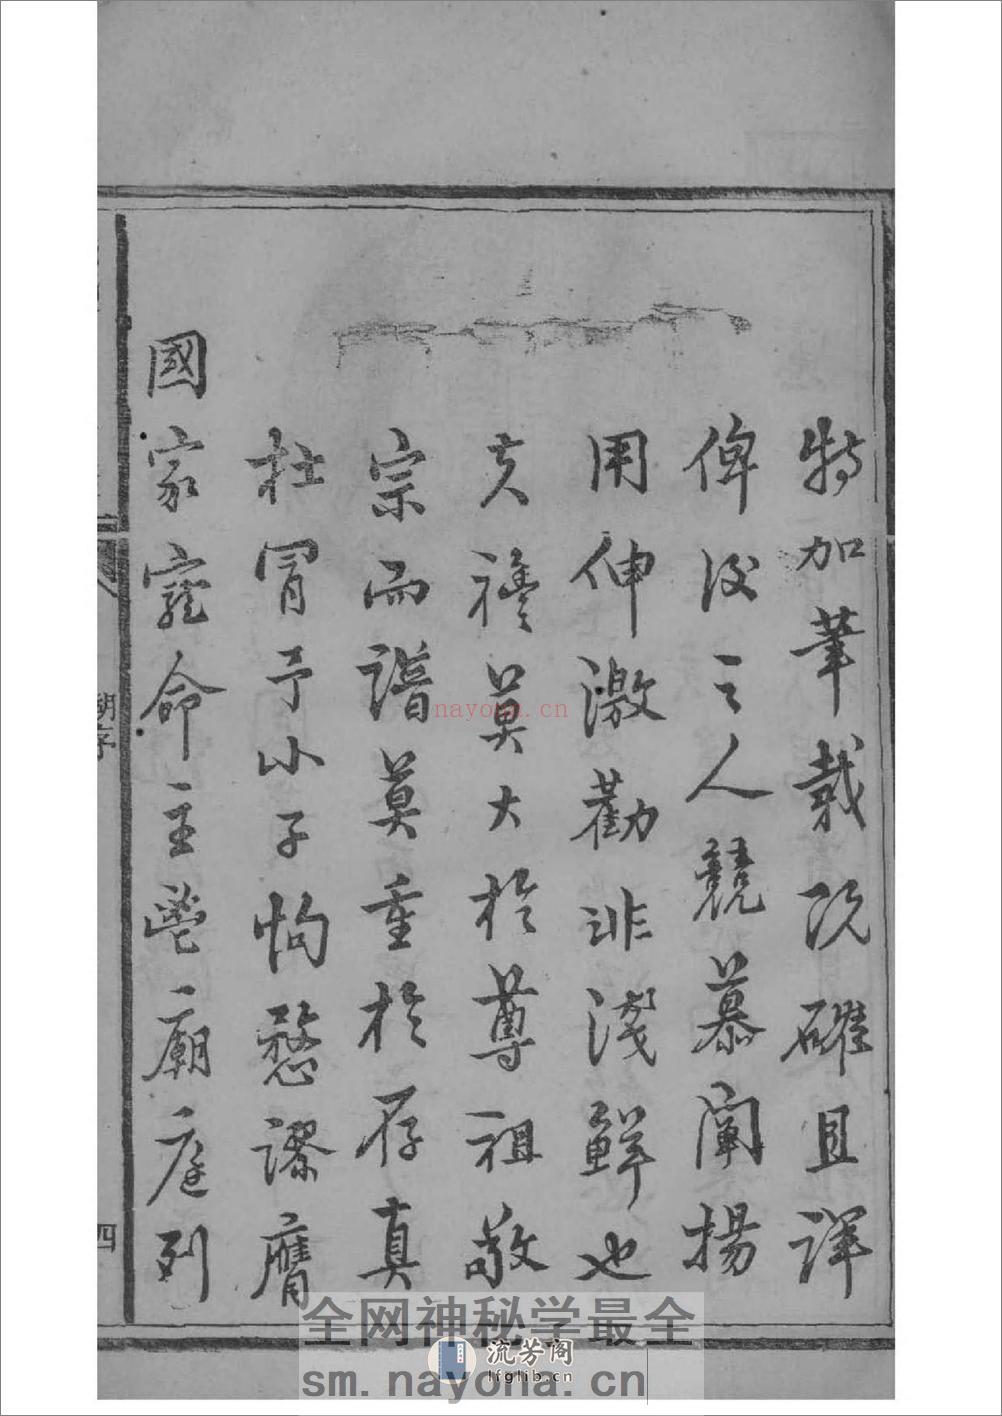 特加筆載既確且詳
俾後之人競慕闡揚
用伸激勸非淺鮮也
夫禮莫大於尊祖敬
宗而譜莫重於存真
杜冒予小子恂愗謬膺
國家寵命主鬯廟庭列
胡序
四
nayona.cn
全网神秘学最全
流芳阁
lfglib.cn
sm.nayona.cn